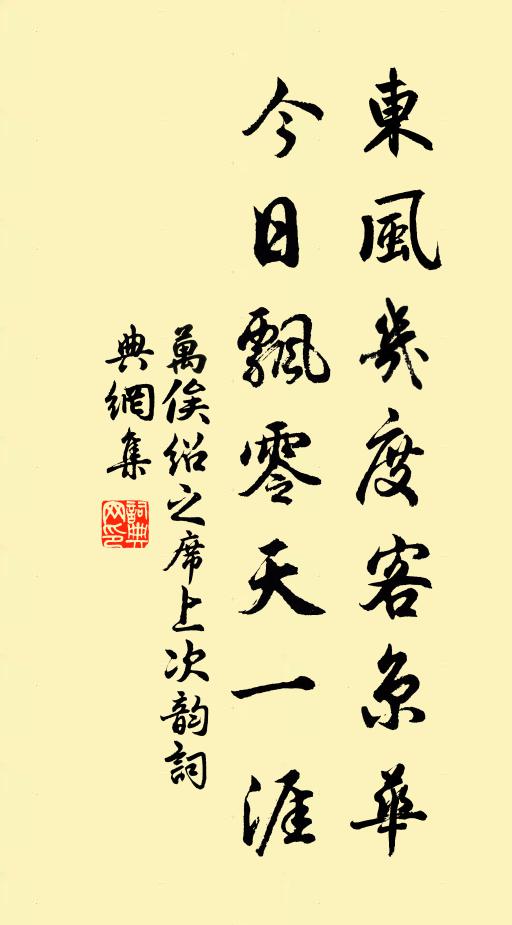 東風幾度客京華
今日飄零天一涯
萬俟绍之席上次韵詞
典網集
詞典
网印